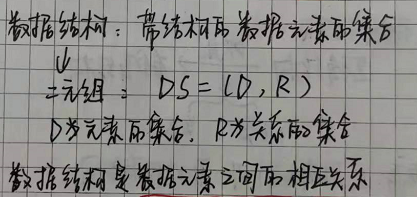 数据结构：带结构的数据元素的集合
↓
二元组：DS=(D,R)
D为元素的集合，R为关系的集合
数据结构是数据元素之间的相互关系